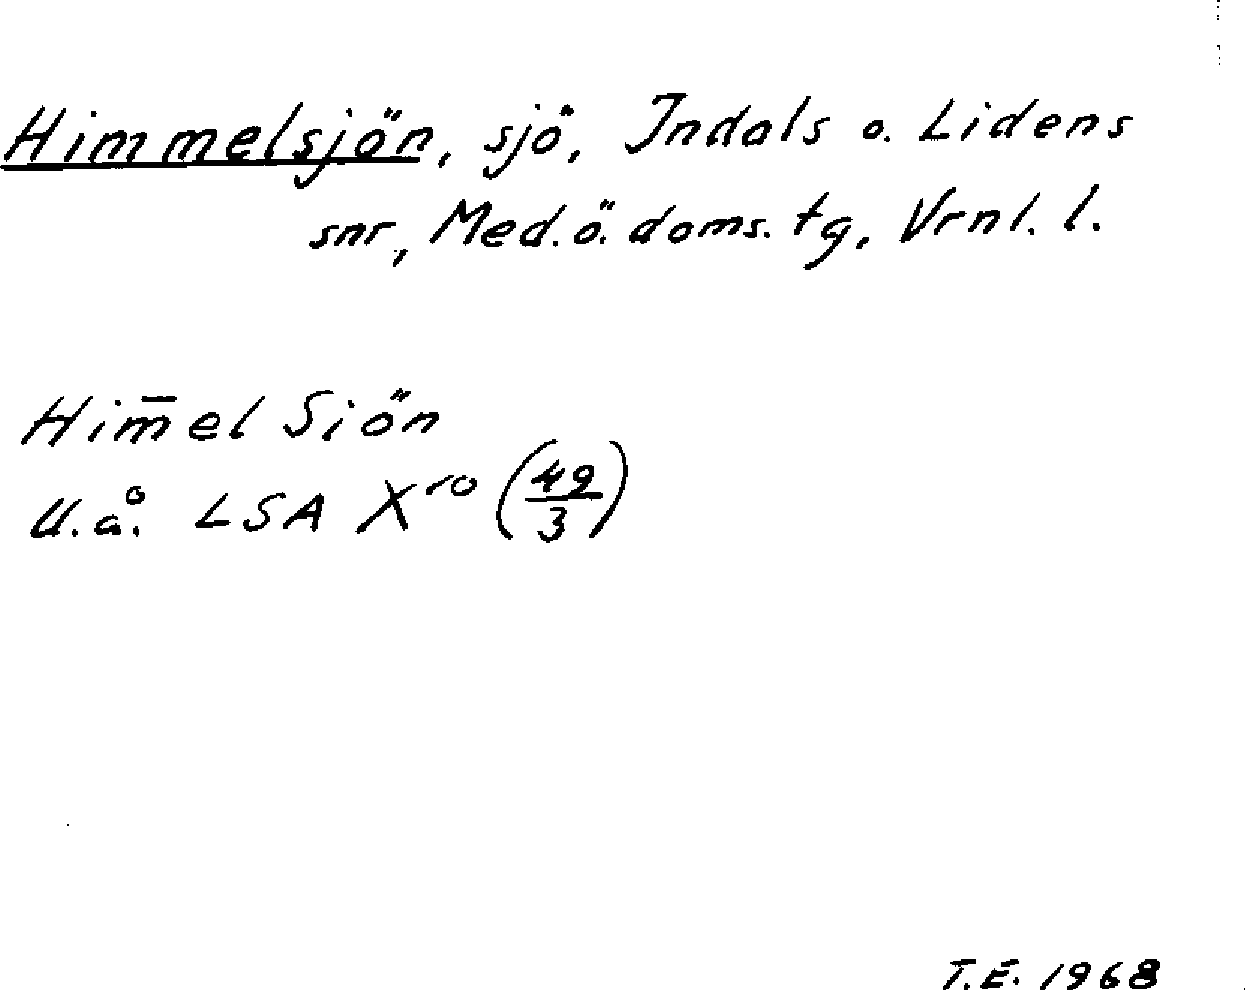 Himmelsjön, sjö, Indals o. Lidens
snr, Med. ö. doms. tg, Vrnl. l.
Him̄el Siön
U.å. LSA X ro (49/3)
T.E. 1968